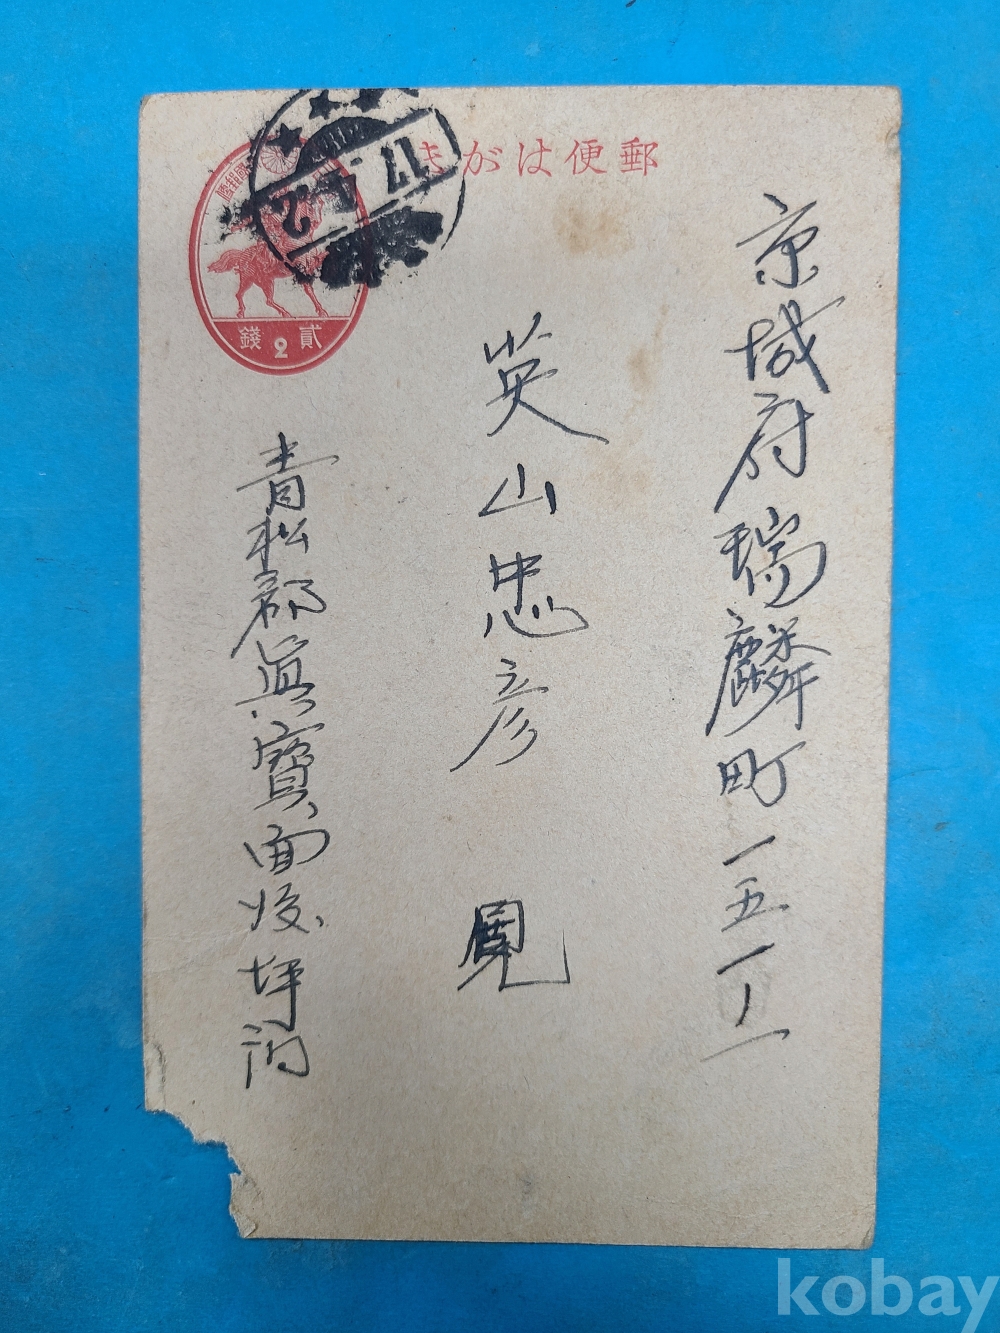 郵便はがき
京城府瑞麟町一五一ノ一
英山忠彦
青松郡眞寶面後坪洞
貳 2 錢
17. 4. 2
kobay